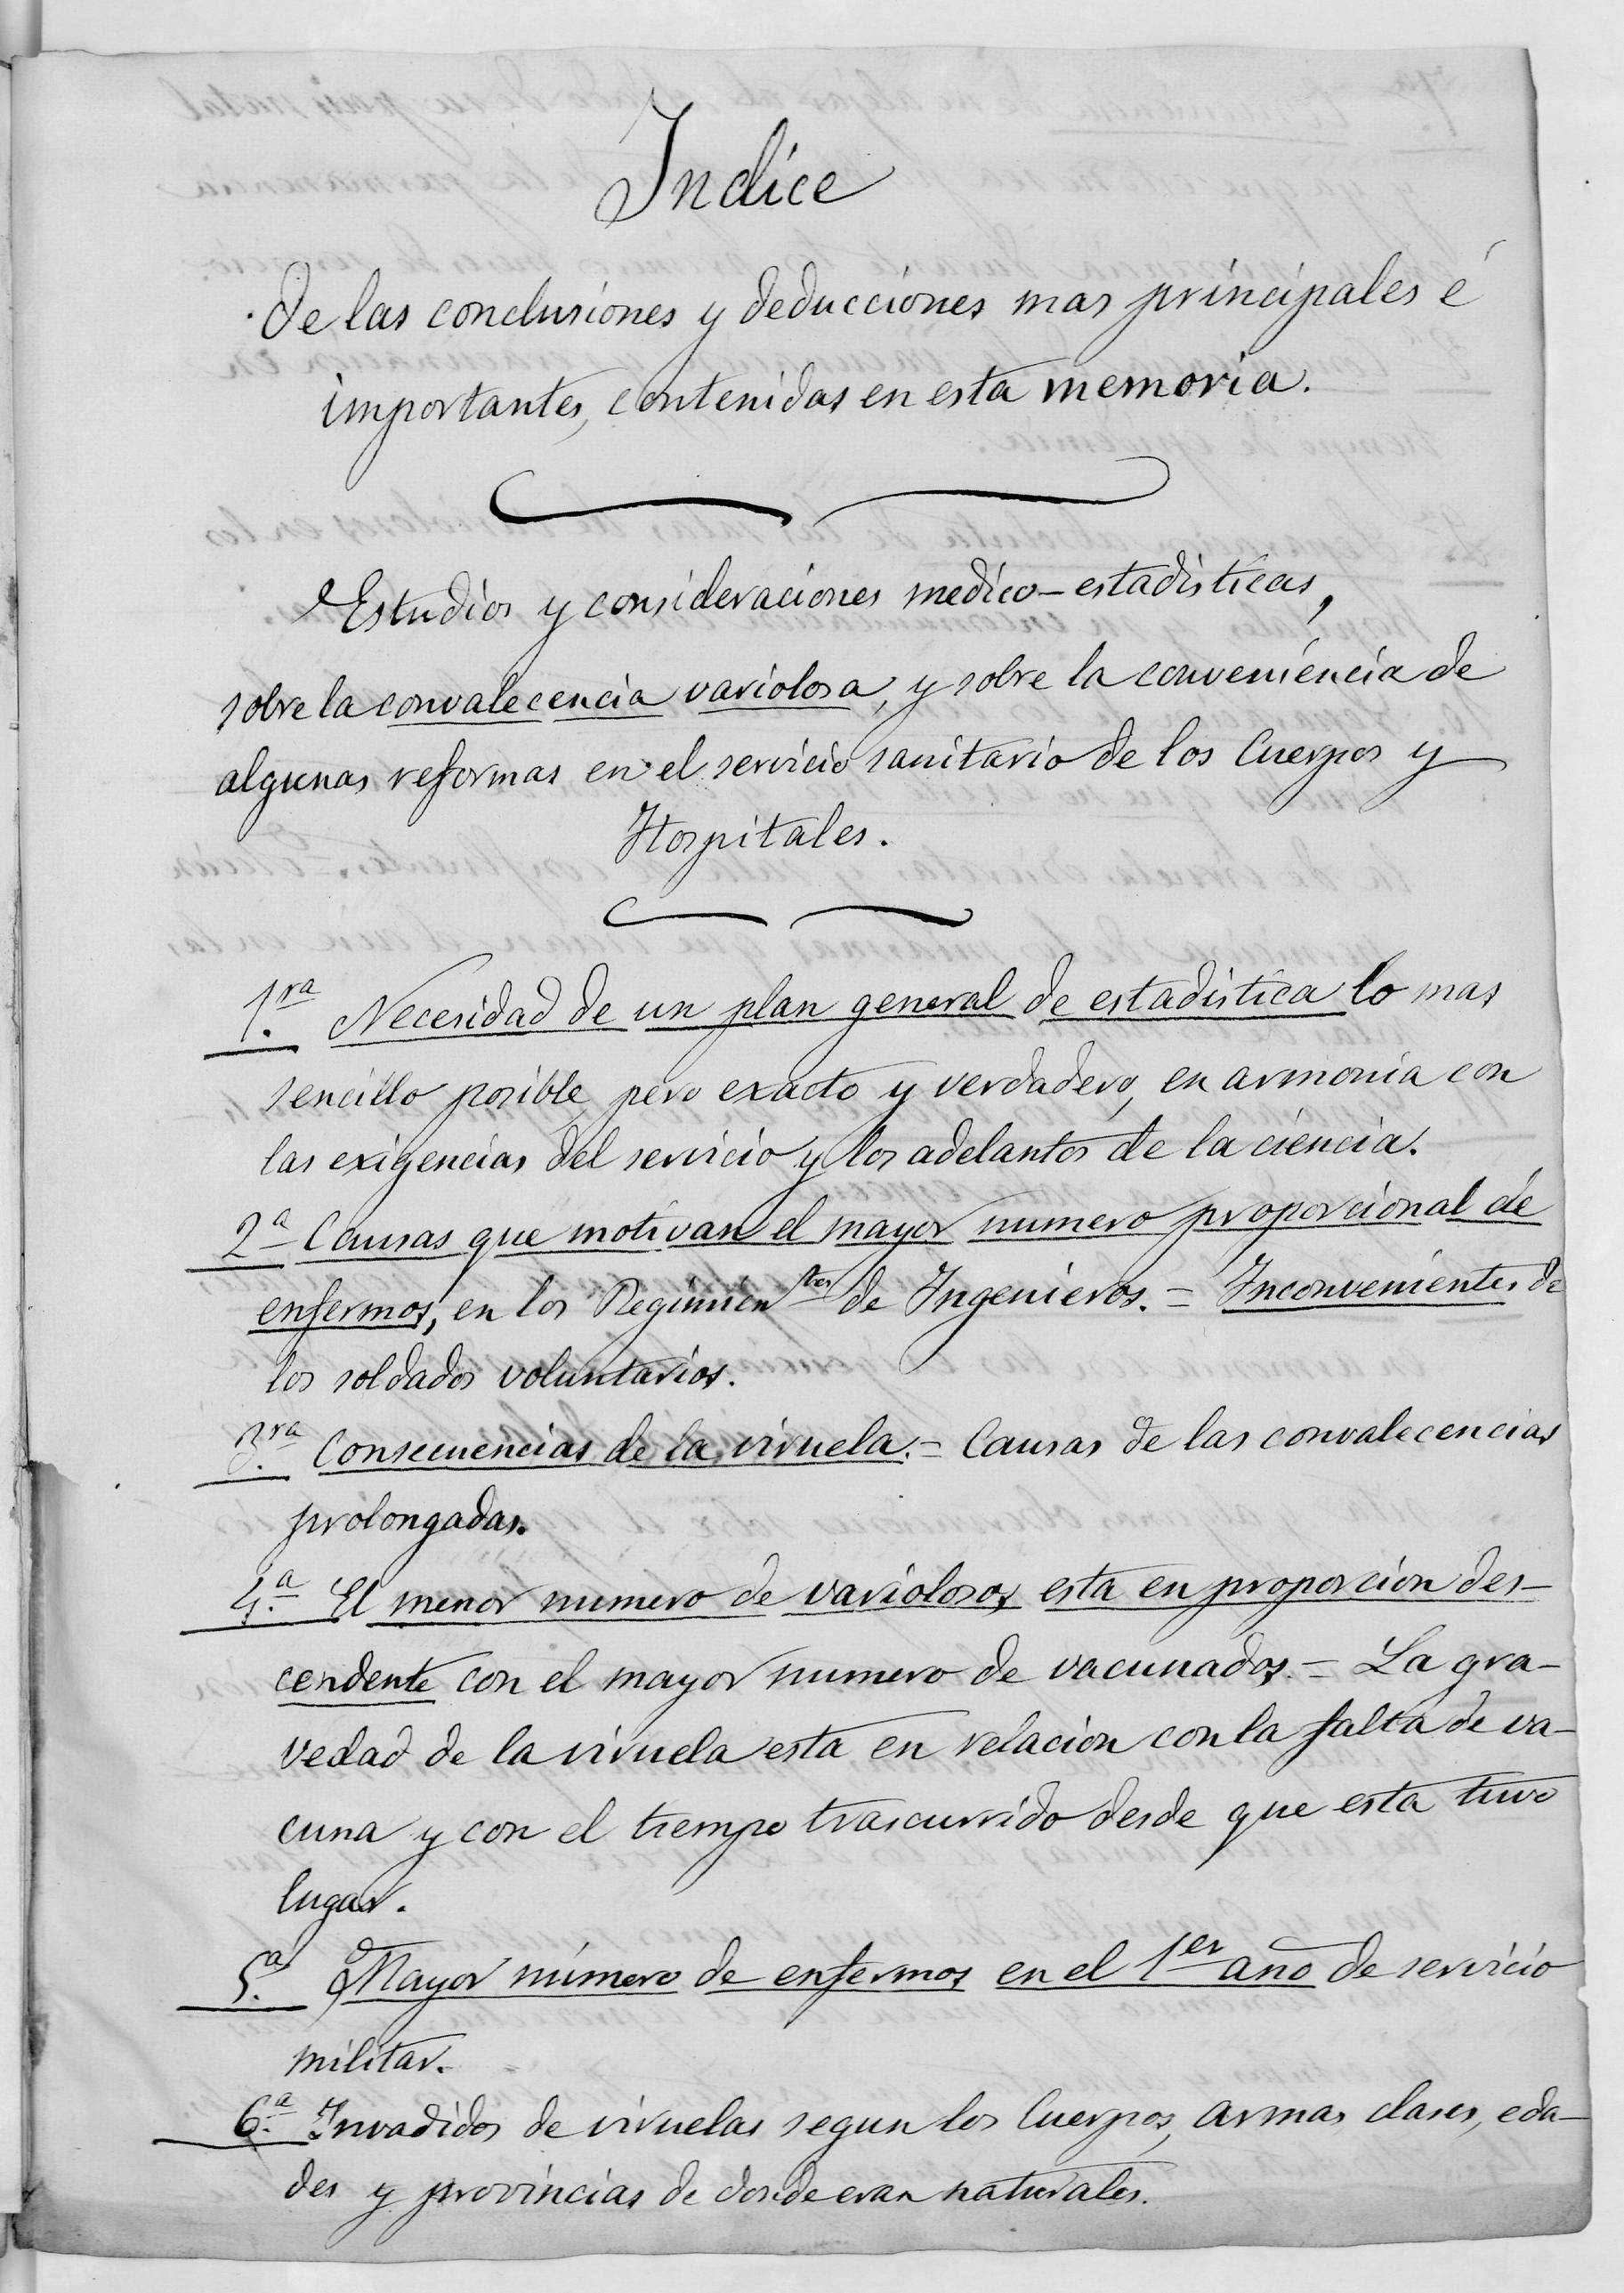 Indice
de las conclusiones y deducciones mas principales é
importantes, contenidas en esta memoria.
Estudios y consideraciones medico-estadisticas,
sobre la convalecencia variolosa, y sobre la conveniencia de
algunas reformas en el servicio sanitario de los Cuerpos y
Hospitales.
1.ra Necesidad de un plan general de estadistica lo mas
sencillo posible, pero exacto y verdadero, en armonia con
las exigencias del servicio y los adelantos de la ciencia.
2a Causas que motivan el mayor numero proporcional de
enfermos, en los Regimientos de Ingenieros. = Inconvenientes de
los soldados voluntarios.
3.ra Consecuencias de la viruela. = Causas de las convalecencias
prolongadas.
4.a El menor numero de variolosos esta en proporcion des-
cendente con el mayor numero de vacunados. = La gra-
vedad de la viruela esta en relacion con la falta de va-
cuna y con el tiempo trascurrido desde que esta tuvo
lugar.
5.a Mayor número de enfermos en el 1er año de servicio
militar.
6.a Invadidos de viruelas segun los Cuerpos, armas, clases, eda-
des y provincias de donde eran naturales.